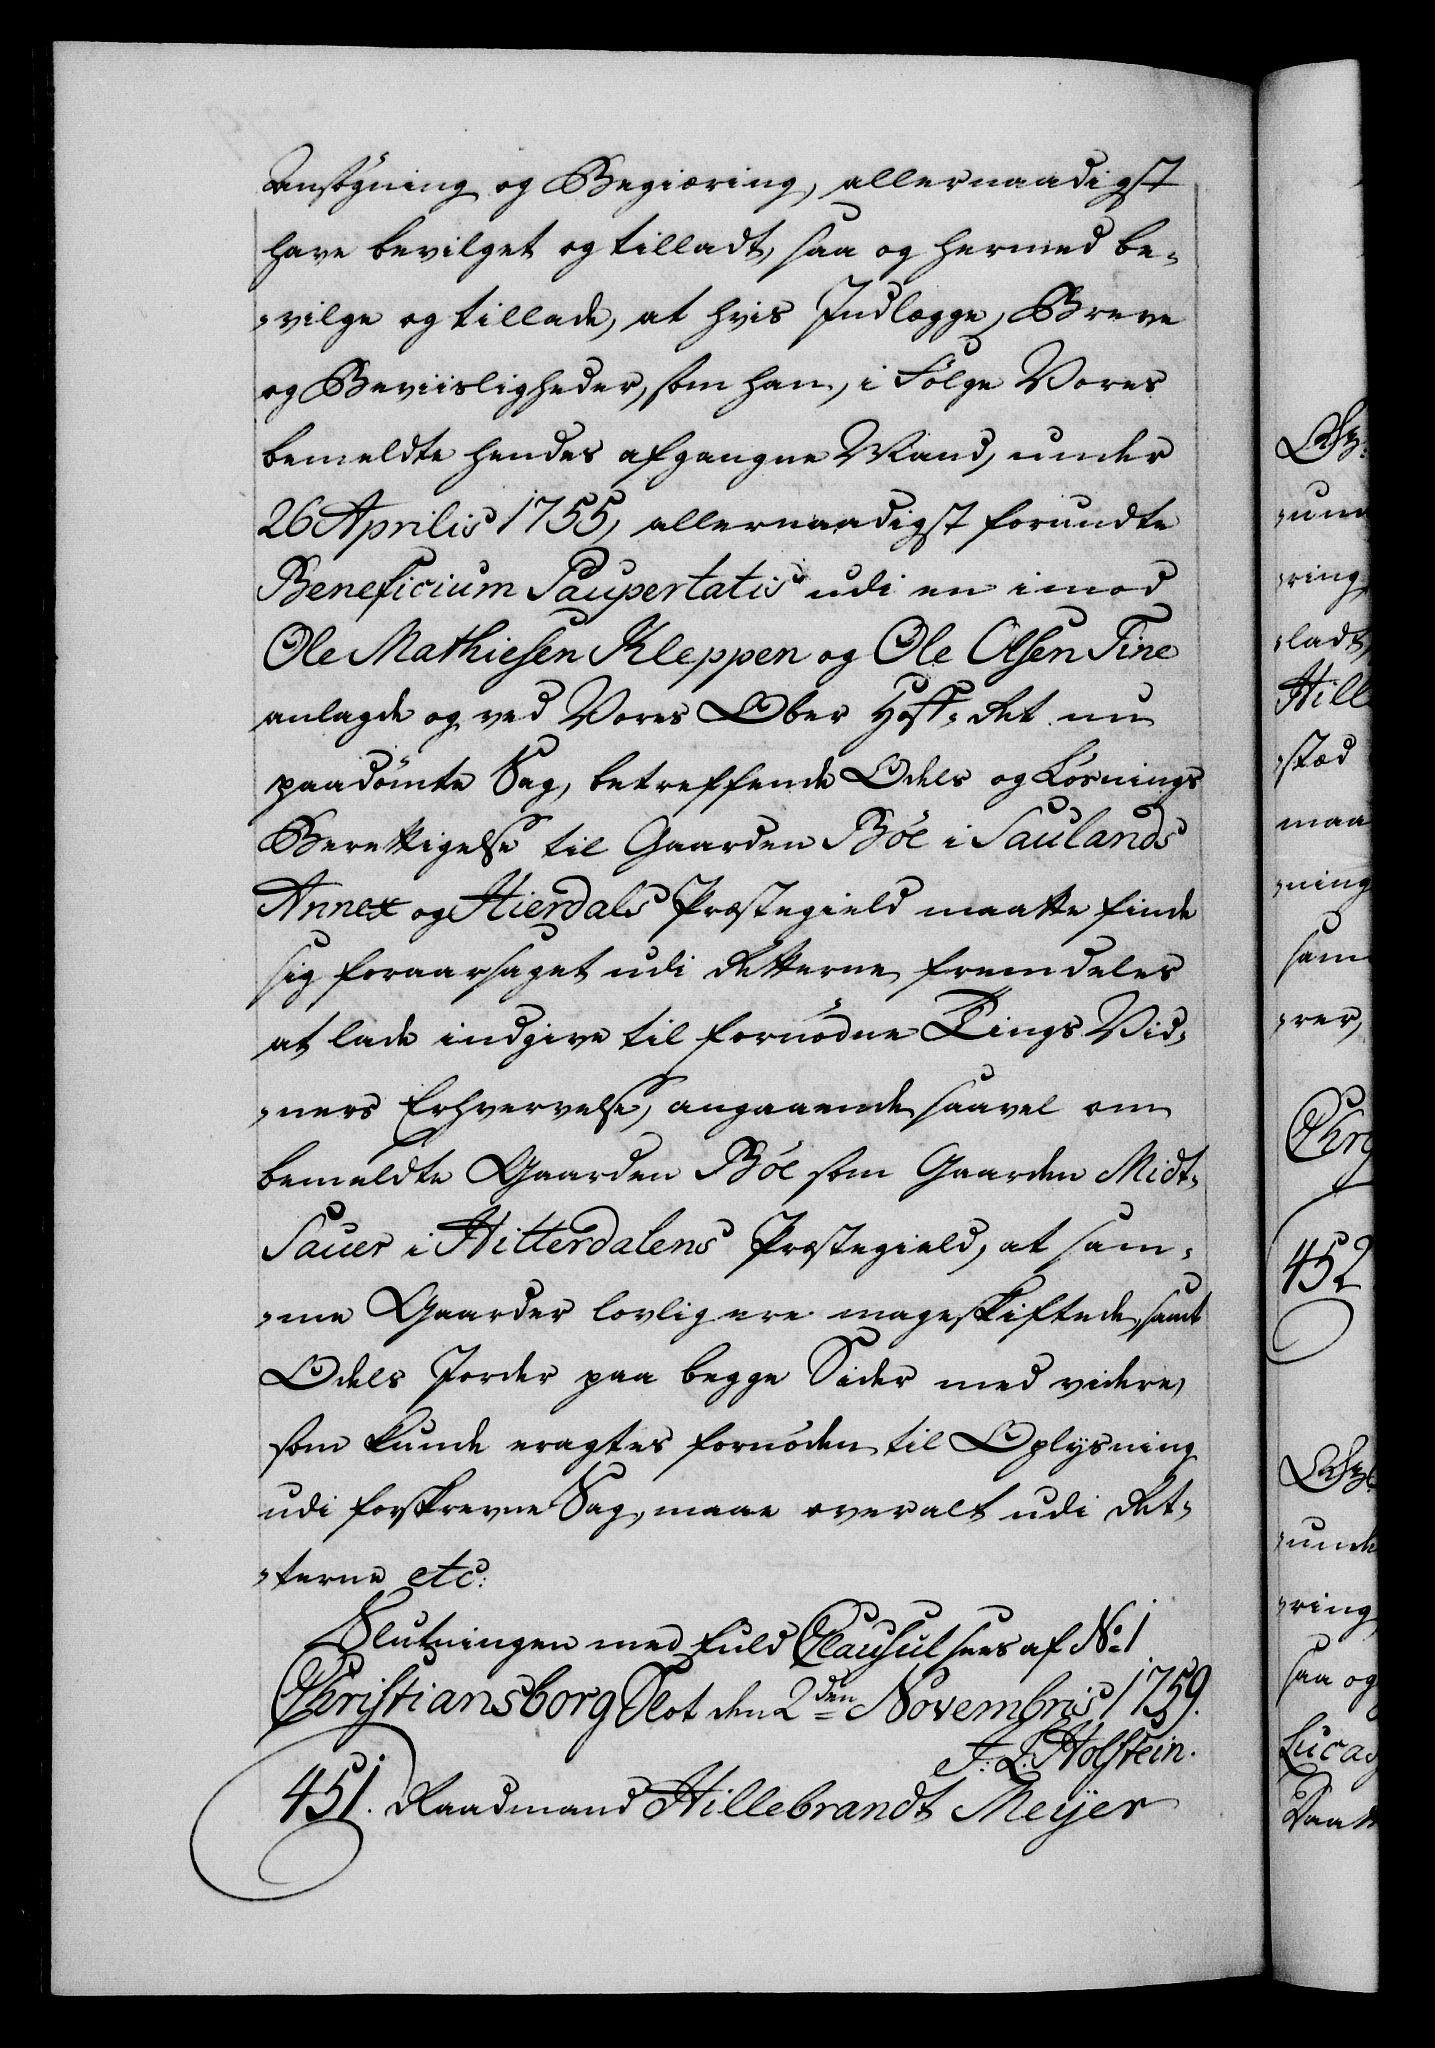 Ansøgning og Begiæring, allernaadigst
have bevilget og tilladt, saa og hermed be-
-vilge og tillade, at hvis Indlægge, Breve
og Beviisligheder, som han, i Følge Vores
bemeldte hendes afgangne Mand, under
26 Aprilis 1755, allernaadigst forundte
Beneficium Paupertatis udi en imod
Ole Mathiesen Kleppen og Ole Olsen Tine
anlagde og ved Vores Ober Hoff-Ret nu
paadömte Sag, betreffende Odels og Løsnings
Berettigelse til Gaarden Bøe i Saulands
Annex og Hierdals Præstegield maatte finde
sig foraarsaget udi Retterne fremdeles
at lade indgive til fornødne Tings Vid-
-ners Erhvervelse, angaaende saavel om
bemeldte Gaarden Bøe som Gaarden Midt-
Sauer i Hitterdalens Præstegield, at sam-
-me Gaarder lovlig ere mageskiftede, samt
Odels Jorder paa begge Sider med videre,
som kunde eragtes fornøden til Oplysning
udi forskrevne Sag, maae overalt udi Ret-
-terne etc:
Slutningen med fuld Clausul sees af No 1
Christiansborg Slot den 2den Novembris 1759.
J: L: Holstein.
451. Raadmand Hillebrandt Meÿer
-ring
-ladt,
Hill
-stæd
maa
-ning
sam
-rer,
Chr
452
-unde
-ring
saa og
Lucas
Raad